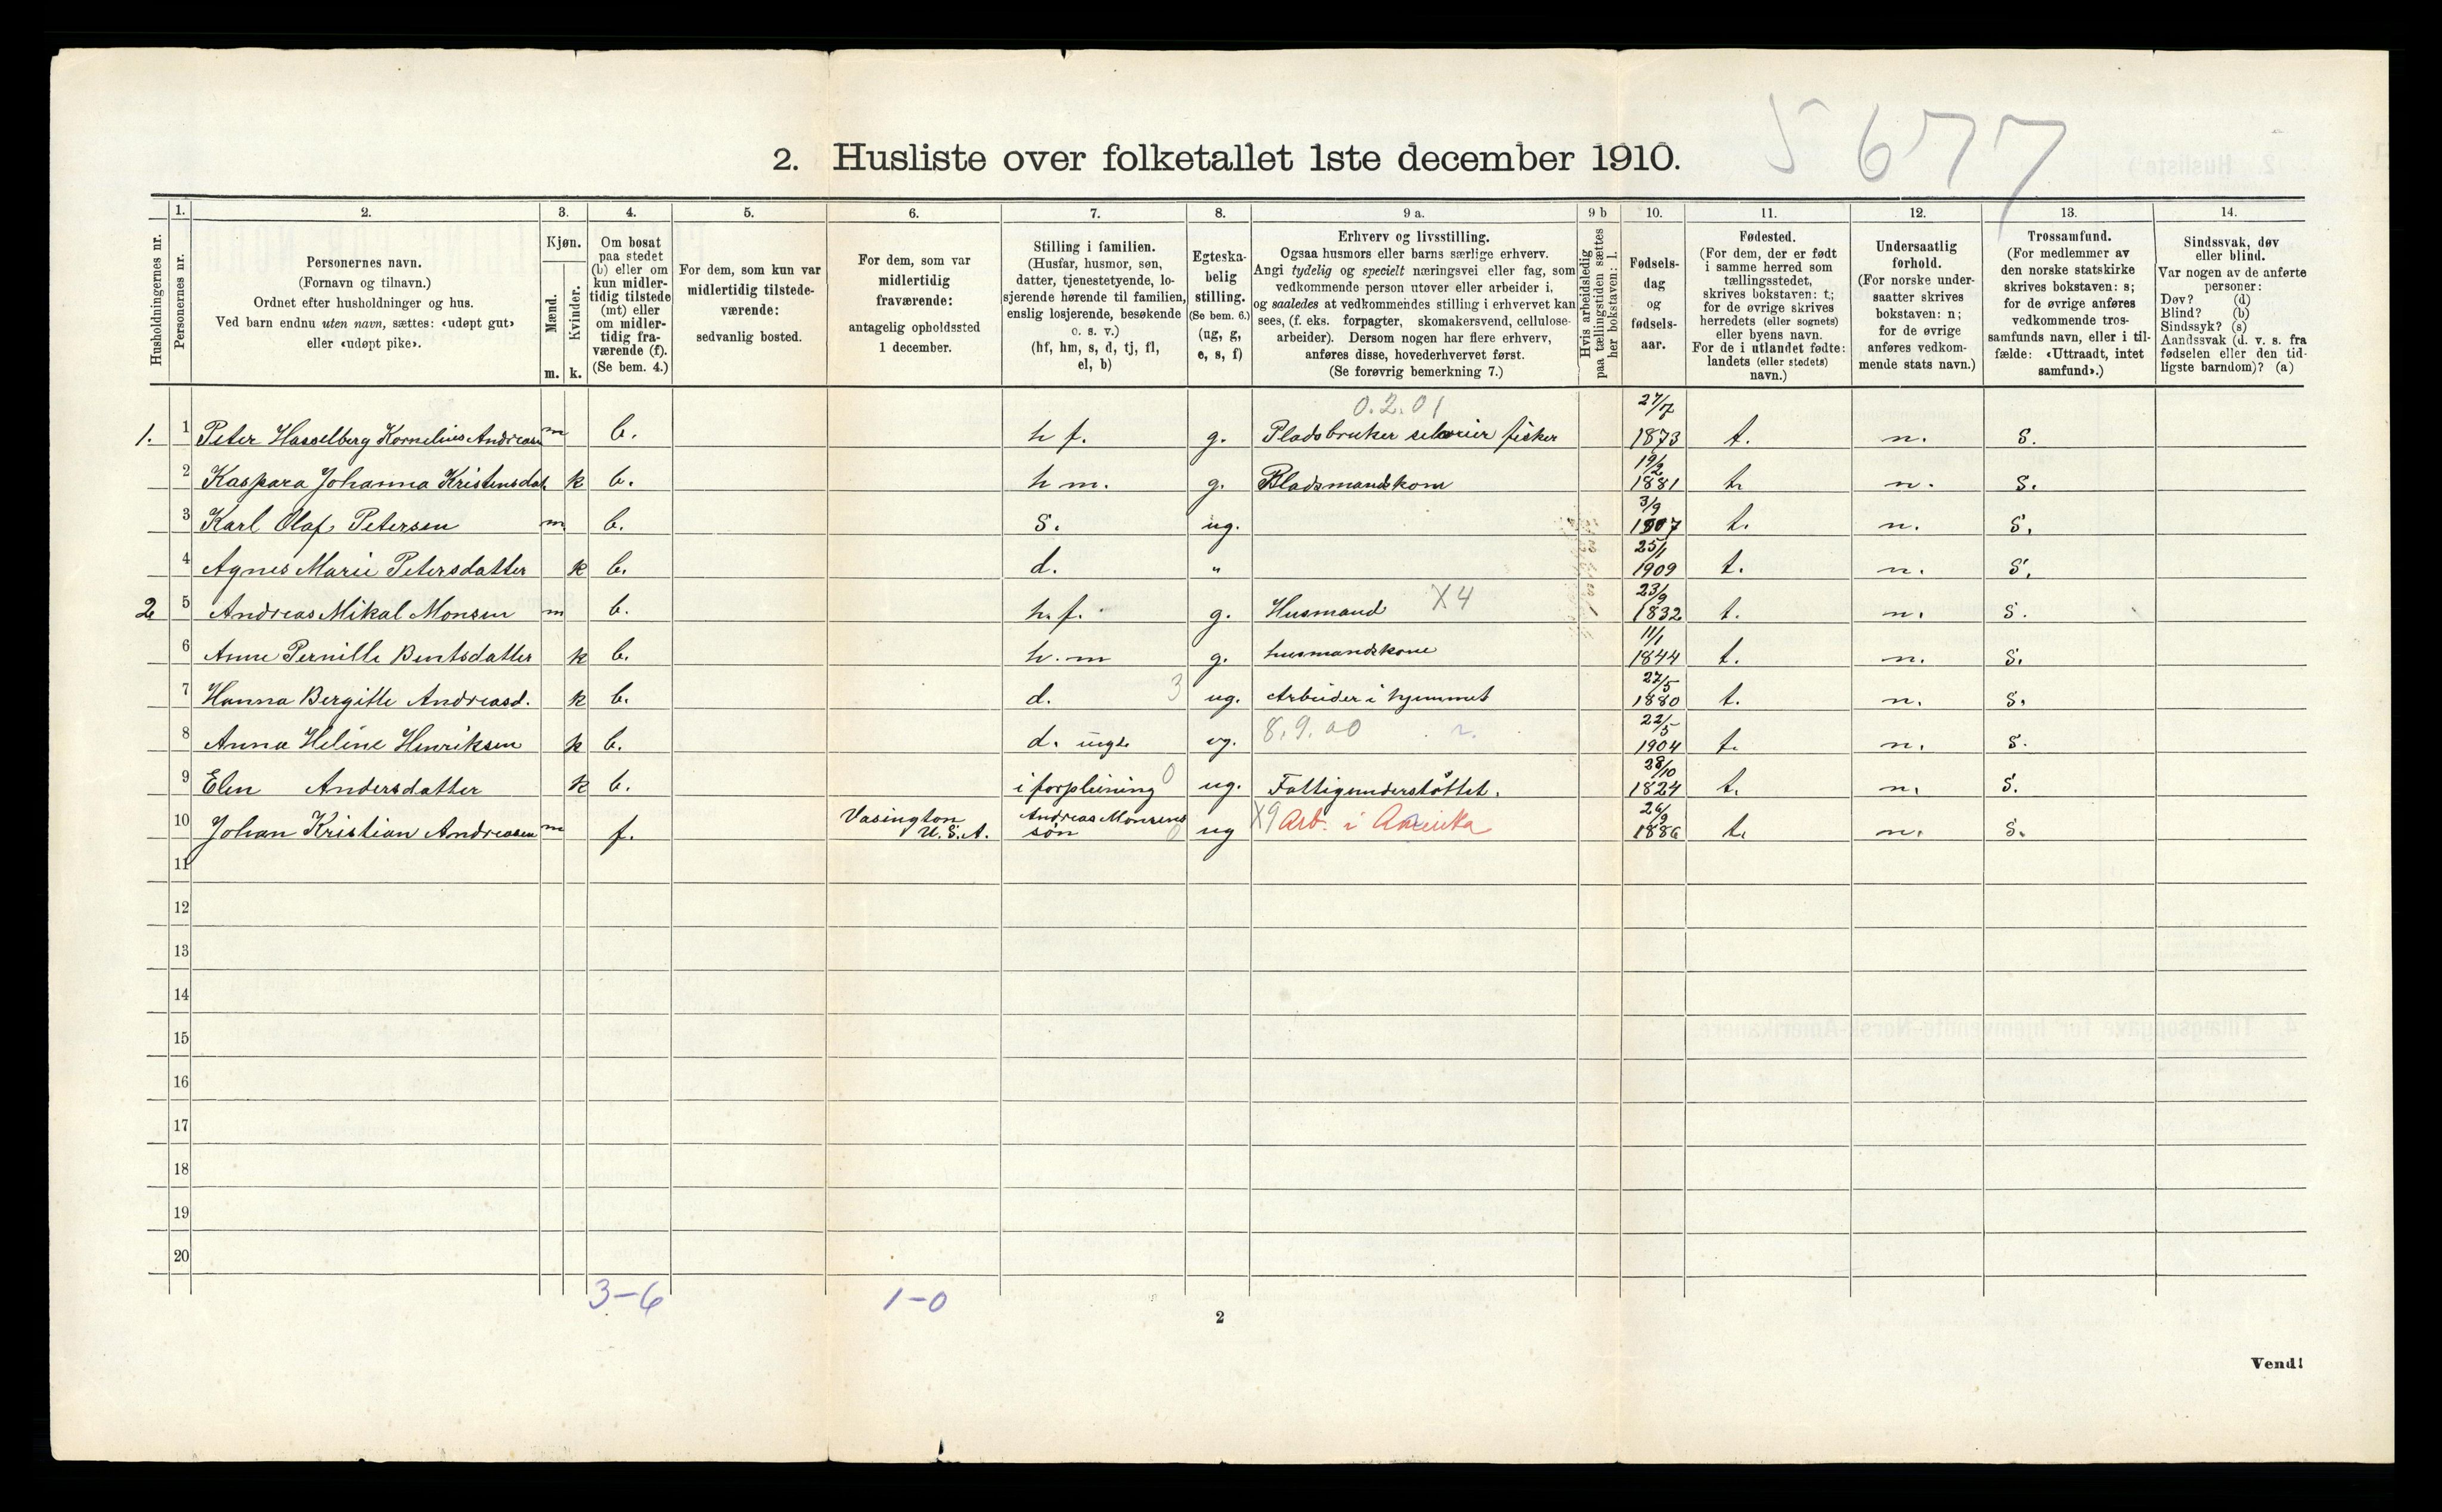 5677
2. Husliste over folketallet 1ste december 1910.
Husholdningernes nr.
1.
Personernes nr.
2.
Personernes navn.
(Fornavn og tilnavn.)
Ordnet efter husholdninger og hus.
Ved barn endnu uten navn, sættes: «udøpt gut»
eller «udøpt pike».
3.
Kjøn.
Mænd.
Kvinder.
m. k.
4.
Om bosat
paa stedet
(b) eller om
kun midler-
tidig tilstede
(mt) eller
om midler-
tidig fra-
værende (f).
(Se bem. 4.)
5.
For dem, som kun var
midlertidig tilstede-
værende:
sedvanlig bosted.
6.
For dem, som var
midlertidig
fraværende:
antagelig opholdssted
1 december.
7.
Stilling i familien.
(Husfar, husmor, søn,
datter, tjenestetyende, lo-
sjerende hørende til familien,
enslig losjerende, besøkende
o. s. v.)
(hf, hm, s, d, tj, fl,
el, b)
8.
Egteska-
belig
stilling.
(Se bem. 6.)
(ug, g,
e, s, f)
9 a.
Erhverv og livsstilling.
Ogsaa husmors eller barns særlige erhverv.
Angi tydelig og specielt næringsvei eller fag, som
vedkommende person utøver eller arbeider i,
og saaledes at vedkommendes stilling i erhvervet kan
sees, (f. eks. forpagter, skomakersvend, cellulose-
arbeider). Dersom nogen har flere erhverv,
anføres disse, hovederhvervet først.
(Se forøvrig bemerkning 7.)
9 b
Hvis arbeidsledig
paa tællingstiden sættes
her bokstaven: l.
10.
Fødsels-
dag
og
fødsels-
aar.
11.
Fødested.
(For dem, der er født
i samme herred som
tællingsstedet,
skrives bokstaven: t;
for de øvrige skrives
herredets (eller sognets)
eller byens navn.
For de i utlandet fødte:
landets (eller stedets)
navn.)
12.
Undersaatlig
forhold.
(For norske under-
saatter skrives
bokstaven: n;
for de øvrige
anføres vedkom-
mende stats navn.)
13.
Trossamfund.
(For medlemmer av
den norske statskirke
skrives bokstaven: s;
for de øvrige anføres
vedkommende tros-
samfunds navn, eller i til-
fælde: «Uttraadt, intet
samfund».)
14.
Sindssvak, døv
eller blind.
Var nogen av de anførte
personer:
Døv? (d)
Blind? (b)
Sindssyk? (s)
Aandssvak (d. v. s. fra
fødselen eller den tid-
ligste barndom)? (a)
0.2.01 27/7
1. 1 Peter Hasselberg Kornelius Andreasen m b. h f. g. Pladsbruker fisker 1873 t. n. S.
19/2
2 Kaspara Johanna Kristensdat. k b. h m. g. Pladsmandskone 1881 t. n. S.
3/9
3 Karl Olaf Petersen m b. S. ug. 1907 t. n. S.
25/1
4 Agnes Marie Petersdatter k b. d. " 1909 t. n. S.
23/9
2 5 Andreas Mikal Monsen m b. h. f. g. Husmand X4 1832 t. n. S.
11/1
6 Anne Pernille Bentsdatter k b. h. m g. husmandskone 1844 t. n. S.
27/5
7 Hanna Bergitte Andreasd. k b. d. 3 ug. Arbeider i hjemmet 1880 t. n. S.
22/5
8 Anna Heline Henriksen k b. d. ug. 8.9.00 1904 t. n. S.
28/10
9 Elen Andersdatter k b. i forpleining 0 ug. Fattigunderstöttet. 1824 t. n. S.
26/9
10 Johan Kristian Andreasen m f. Vasington U.S.A. Andreas Monsens søn 0 ug X9 Arb. i Amerika 1886 t. n. S.
11
12
13
14
15
16
17
18
19
20
3-6 1-0
2
Vend!